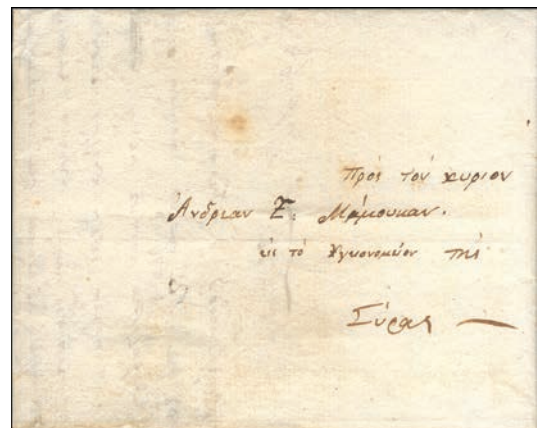 Πρὸς τὸν κυριον
Ἀνδρεαν Ζ. Μάμουκαν.
εις τὸ Ὑγιονομεῖον τῆς
Σύρας —